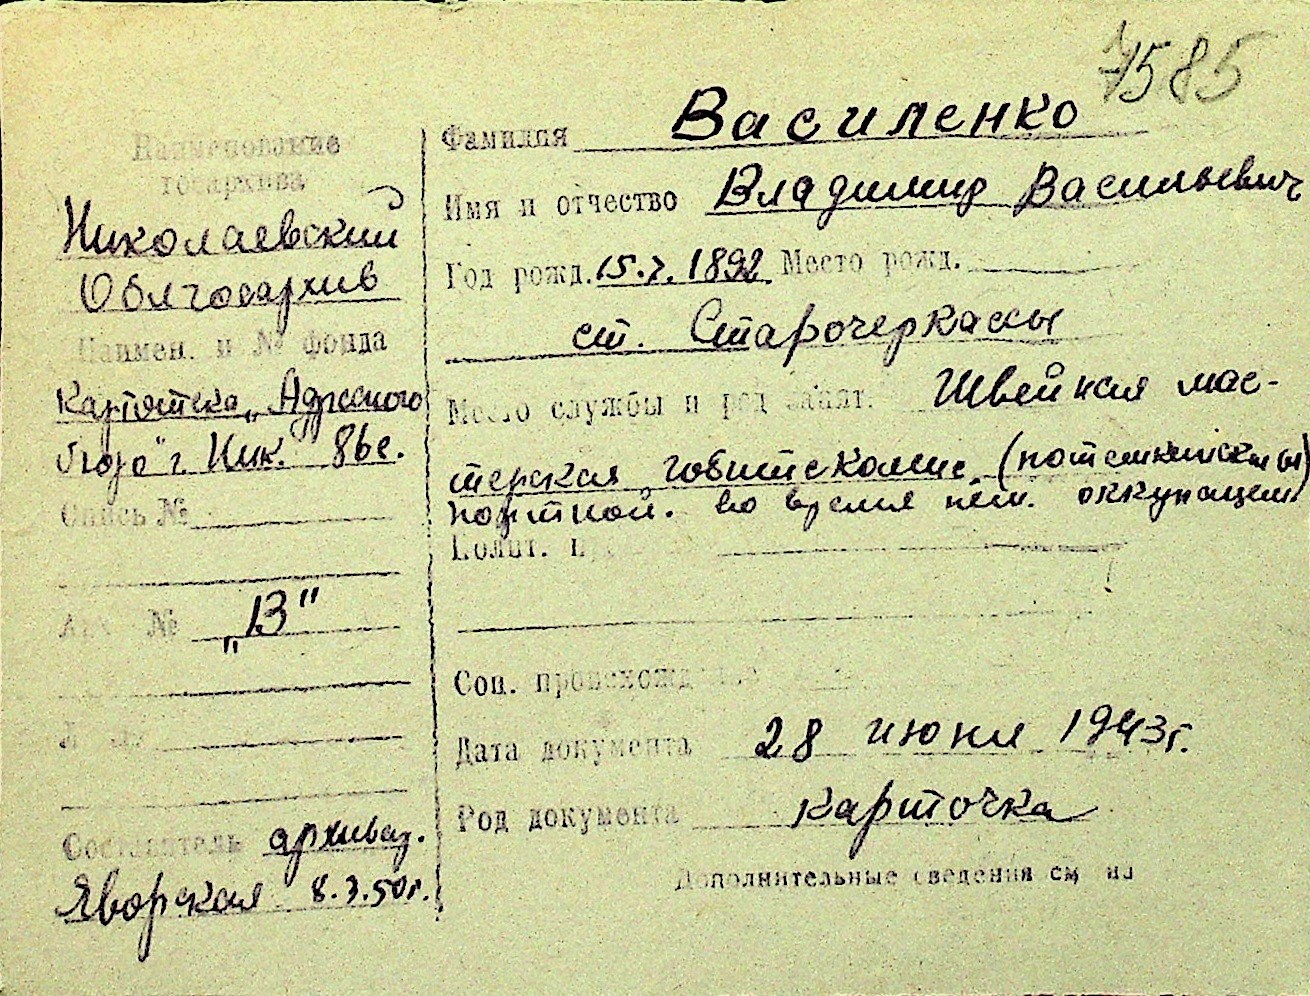 7585
Наименование
госархива
Николаевский
Облгосархив
Наимен. и № фонда
Картотека „Адресного
бюро" г. Ник.
Опись №
№ „В"
Составитель архивар.
Яворская 8.3.50г.
Фамилия Василенко
Имя и отчество Владимир Васильевич
Год рожд. 15.7.1892 Место рожд.
ст. Старочеркассы
Место службы и род занят. Швейная мас-
терская
портной. во время нем. оккупации
Полит.
Соц. происхожд
Дата документа 28 июня 1943г.
Род документа карточка
Дополнительные сведения см на